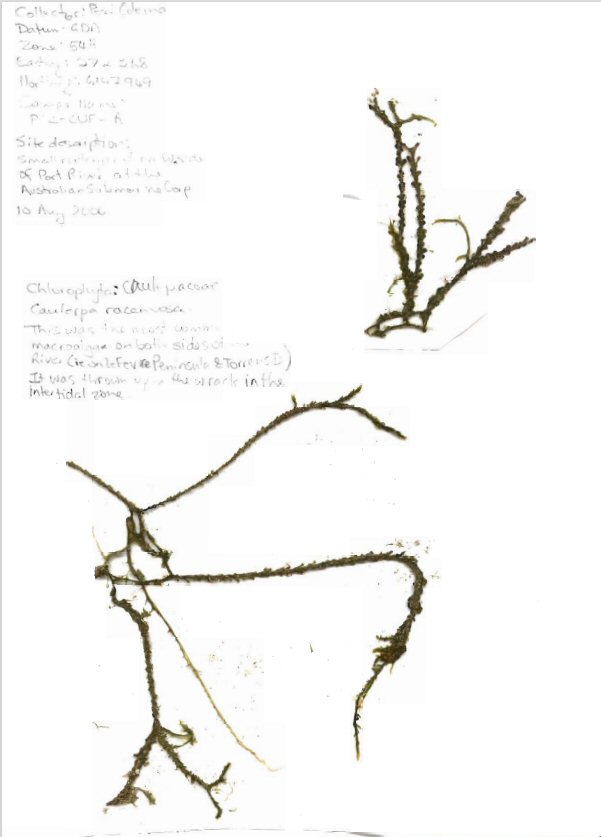 Collector: Peri Coleman
Datum: GDA
Zone: 54H
Easting: 272 568
6147949
Name:
Site description:
Small on Western
of Port River at the
Australian Submarine Corp
10 Aug 2006
Chlorophyta: Caulerpaceae
Caulerpa racemosa.
This was the most common
macroalgae on both sides of
River (ie on LeFevre Peninsula & Torrens I)
It was thrown up in the wrack in the
intertidal zone